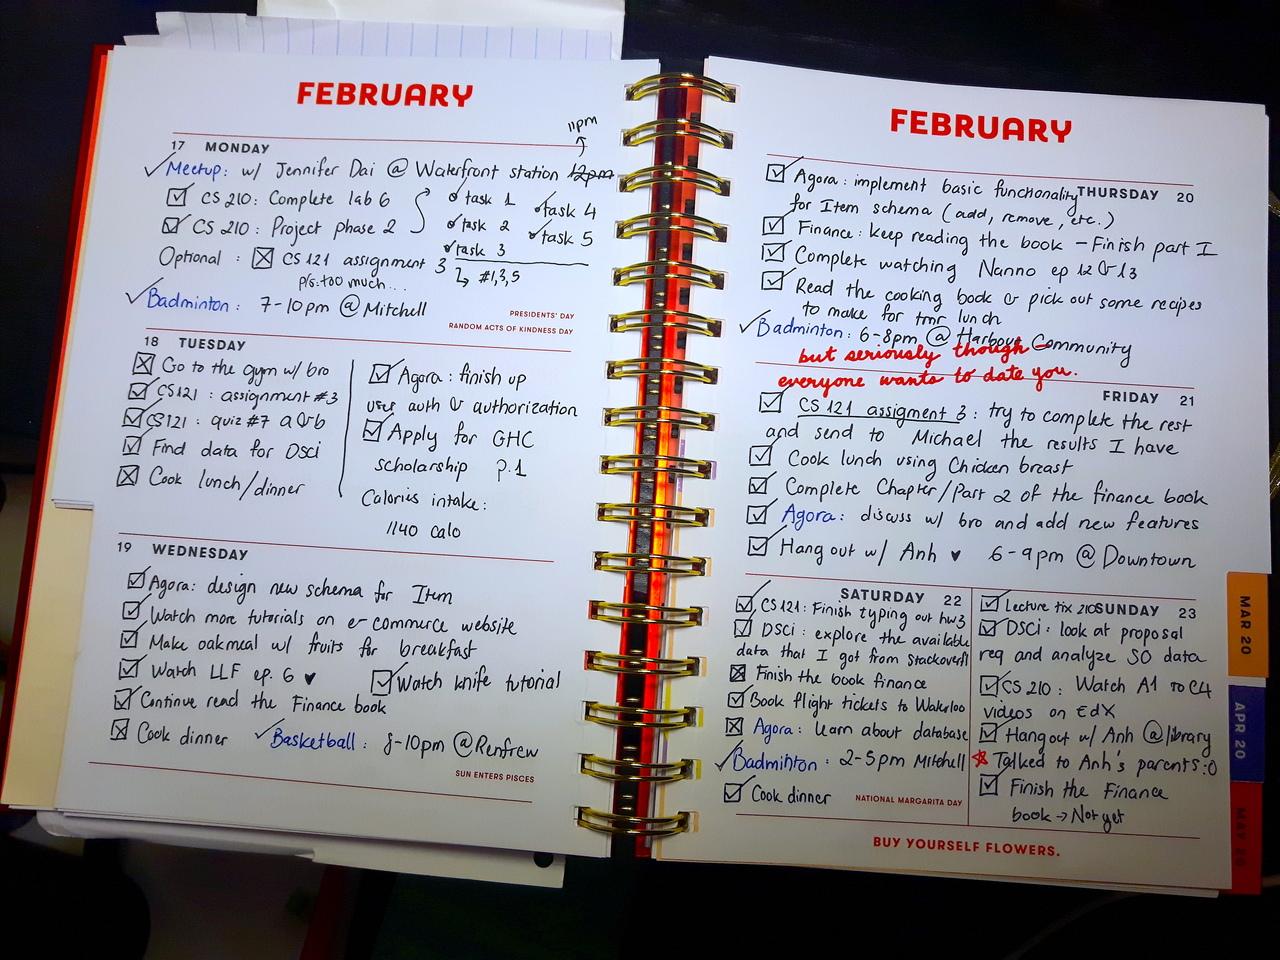 FEBRUARY
17 MONDAY
11pm
Meetup: w/ Jennifer Dai @ Waterfront station 12pm
CS 210: Complete lab 6
CS 210: Project phase 2
task 1
task 2
task 3
task 4
task 5
#1,3,5
Optional : CS 121 assignment 3
p/s: too much...
Badminton: 7-10pm @ Mitchell
PRESIDENTS' DAY
RANDOM ACTS OF KINDNESS DAY
18 TUESDAY
Go to the gym w/ bro
CS121 : assignment #3
CS121 : quiz #7 a & b
Find data for DSci
Cook lunch/dinner
Agora: finish up
user auth & authorization
Apply for GHC
scholarship p.1
Calories intake:
1140 calo
19 WEDNESDAY
Agora: design new schema for Item
Watch more tutorials on e-commerce website
Make oakmeal w/ fruits for breakfast
Watch LLF ep. 6 ♥
Watch knife tutorial
Continue read the Finance book
Cook dinner
Basketball : 8-10pm @Renfrew
SUN ENTERS PISCES
FEBRUARY
THURSDAY 20
Agora: implement basic functionality
for Item schema (add, remove, etc.)
Finance: keep reading the book - Finish part I
Complete watching Nanno ep 12 & 13
Read the cooking book & pick out some recipes
to make for tmr lunch
Badminton: 6-8pm @ Harbour Community
but seriously though -
everyone wants to date you.
FRIDAY 21
CS 121 assigment 3: try to complete the rest
and send to Michael the results I have
Cook lunch using Chicken breast
Complete Chapter/Part 2 of the finance book
Agora: discuss w/ bro and add new features
Hang out w/ Anh ♥ 6-9pm @ Downtown
SATURDAY 22
CS 121: Finish typing out hw3
DSCi: explore the available
data that I got from stackoverfl
Finish the book finance
Book flight tickets to Waterloo
Agora: learn about database
Badminton: 2-5pm Mitchell
Cook dinner
NATIONAL MARGARITA DAY
SUNDAY 23
Lecture fix 210
DSCi: look at proposal
req and analyze SO data
CS 210: Watch A1 to C4
videos on EdX
Hangout w/ Anh @library
Talked to Anh's parents :O
Finish the Finance
book → Not yet
BUY YOURSELF FLOWERS.
MAR 20
APR 20
MAY 20